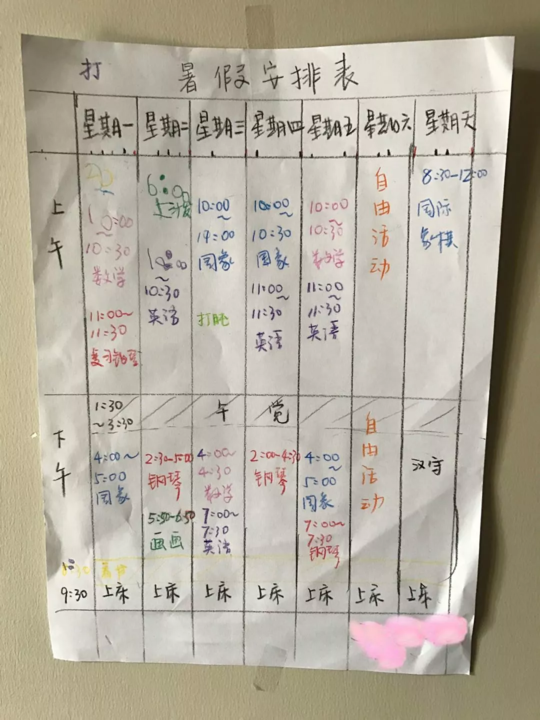 打
暑假安排表
星期一 星期二 星期三 星期四 星期五 星期六 星期天
上午
10:00
~
10:30
数学
11:00~
11:30
复习钢琴
6:00
出发
10:00
10:30
英语
10:00
~
14:00
国象
打胜
10:00
~
10:30
国象
11:00
~
11:30
英语
10:00
~
10:30
数学
11:00
~
11:30
英语
自由活动
8:30-12:00
国际
象棋
1:30
~3:30
午觉
下午
4:00~
5:00
国象
2:30-5:00
钢琴
5:50-6:50
画画
4:00~
4:30
数学
7:00~
7:30
英语
2:00-4:30
钢琴
4:00
~
5:00
国象
7:00~
7:30
钢琴
自由活动
汉字
9:30 上床 上床 上床 上床 上床 上床 上床